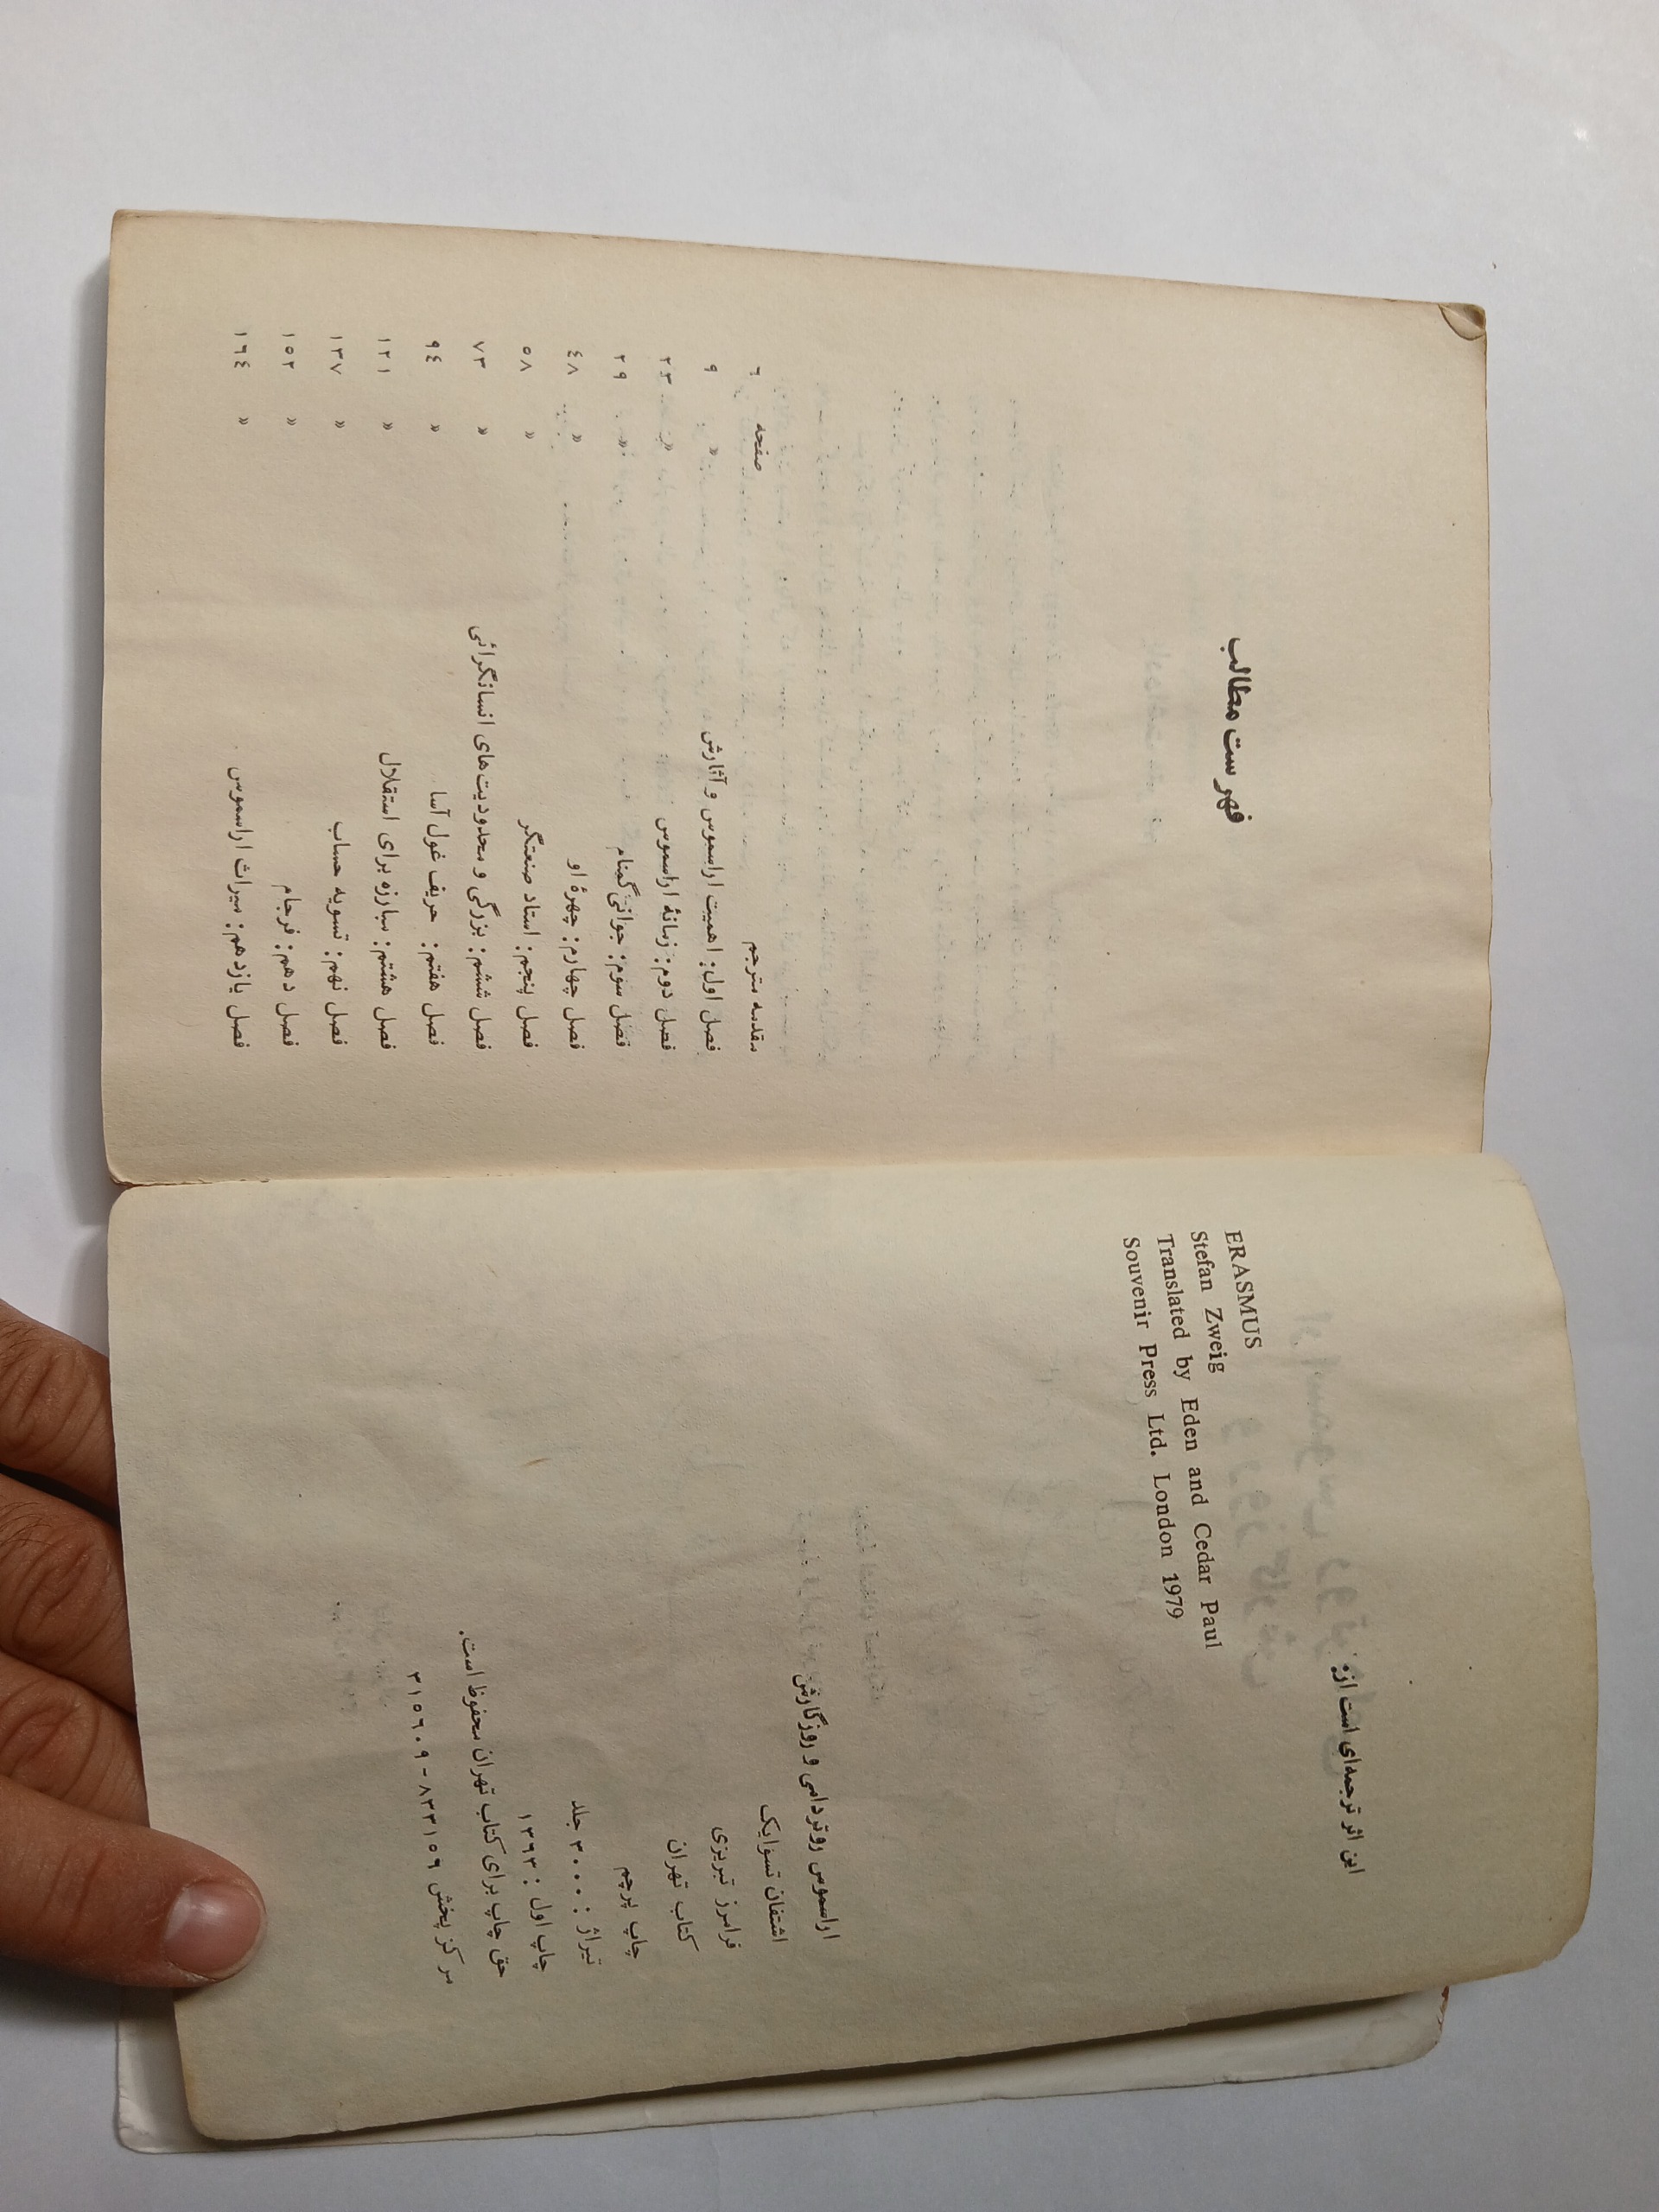 این اثر ترجمه‌ای است از:
ERASMUS
Stefan Zweig
Translated by Eden and Cedar Paul
Souvenir Press Ltd. London 1979
اراسموس روتردامی و روزگارش
اشتفان تسوایک
فرامرز تبریزی
کتاب تهران
چاپ پرچم
تیراژ: ۳۰۰۰ جلد
چاپ اول: ۱۳۶۳
حق چاپ برای کتاب تهران محفوظ است.
مرکز پخش ۸۳۳۱۵۶ - ۳۱۵۶۰۹
فهرست مطالب
مقدمه مترجم صفحه ۶
فصل اول: اهمیت اراسموس و آثارش » ۹
فصل دوم: زمانهٔ اراسموس » ۲۳
فصل سوم: جوانی گمنام » ۲۹
فصل چهارم: چهرهٔ او » ۴۸
فصل پنجم: استاد صنعتگر » ۵۸
فصل ششم: بزرگی و محدودیت‌های انسانگرائی » ۷۳
فصل هفتم: حریف غول آسا » ۹۴
فصل هشتم: مبارزه برای استقلال » ۱۲۱
فصل نهم: تسویه حساب » ۱۳۷
فصل دهم: فرجام » ۱۵۲
فصل یازدهم: میراث اراسموس » ۱۶۴